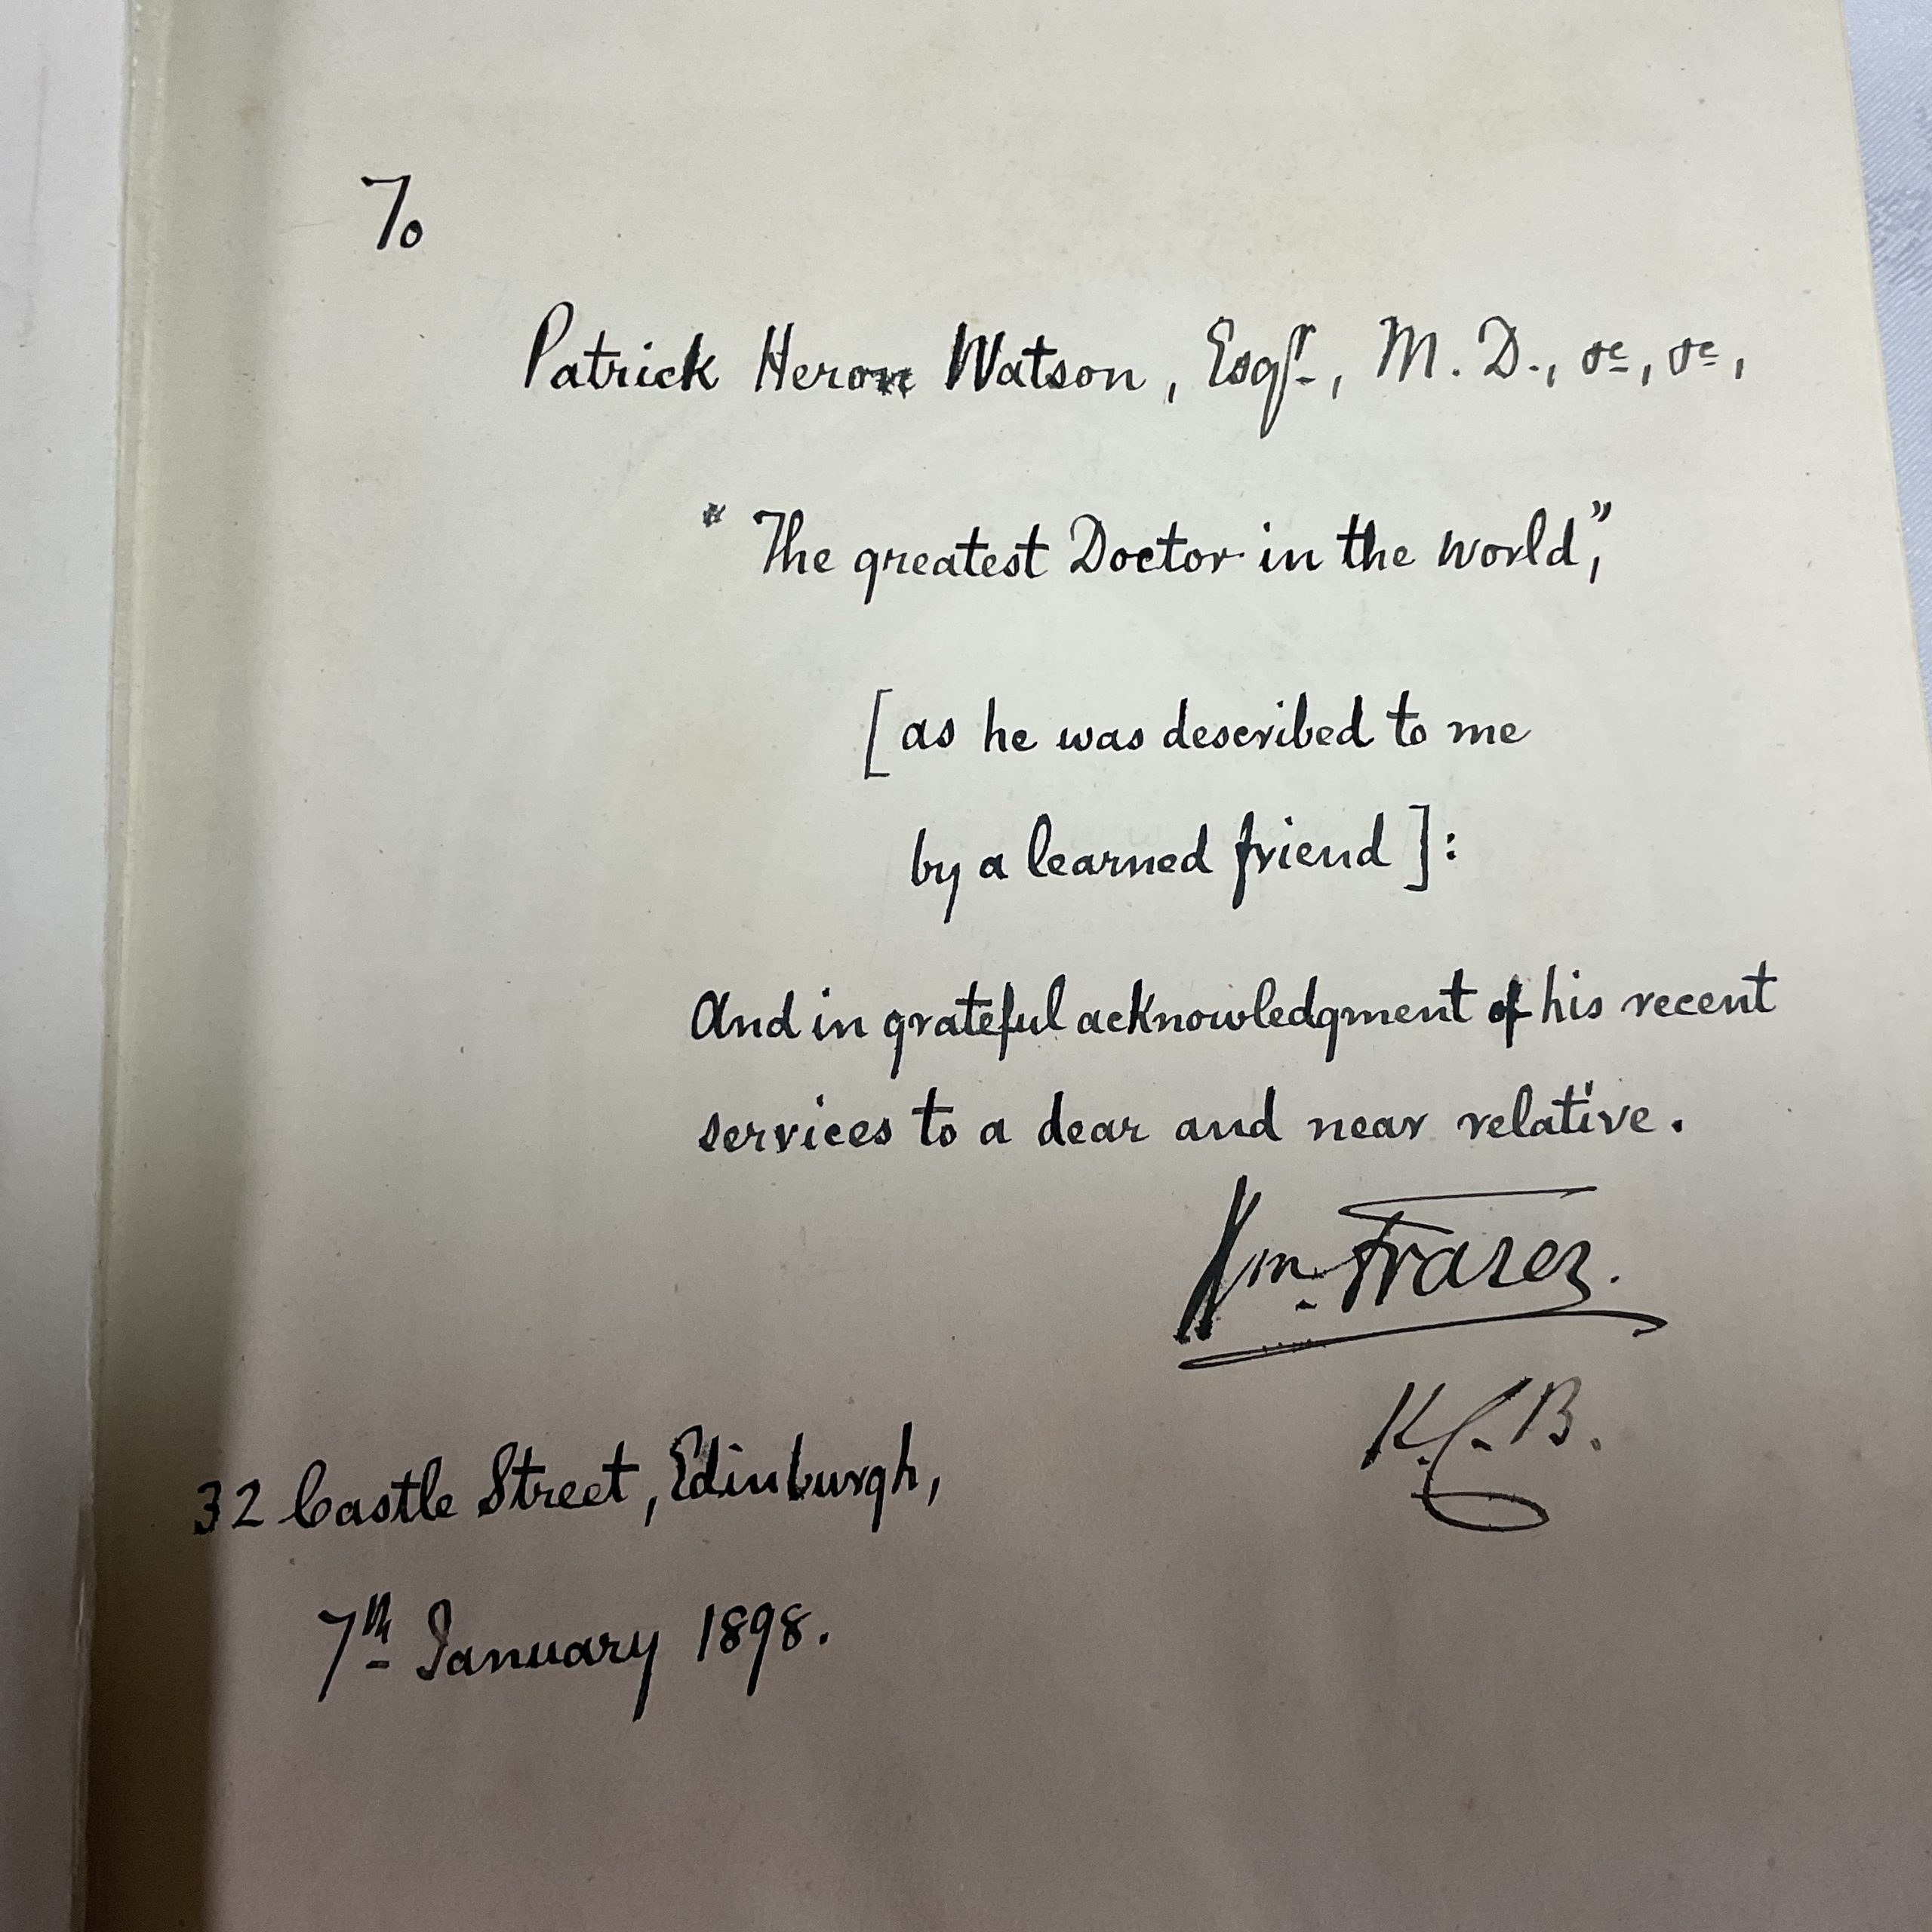 To
Patrick Heron Watson, Esqr., M.D., &c, &c,
"The greatest Doctor in the world,"
[as he was described to me
by a learned friend]:
And in grateful acknowledgment of his recent
services to a dear and near relative.
Wm. Fraser.
K.C.B.
32 Castle Street, Edinburgh,
7th January 1898.